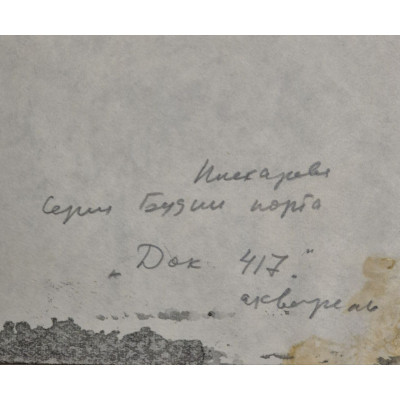 Пискарева
Серия Будни порта
„Док 417."
акварель